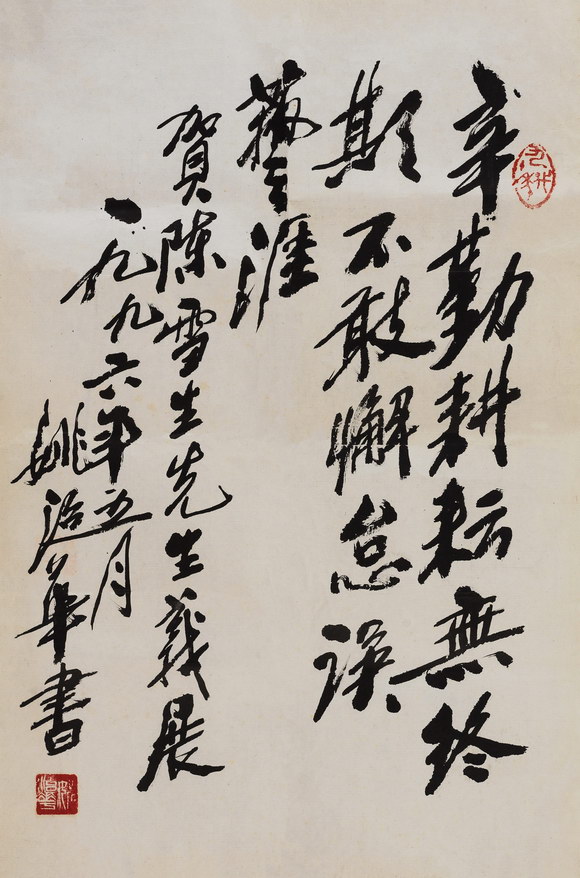 辛勤耕耘無終
期不敢懈怠誤
藝涯
賀陳雪生先生義展
一九九六年五月
姚治華書